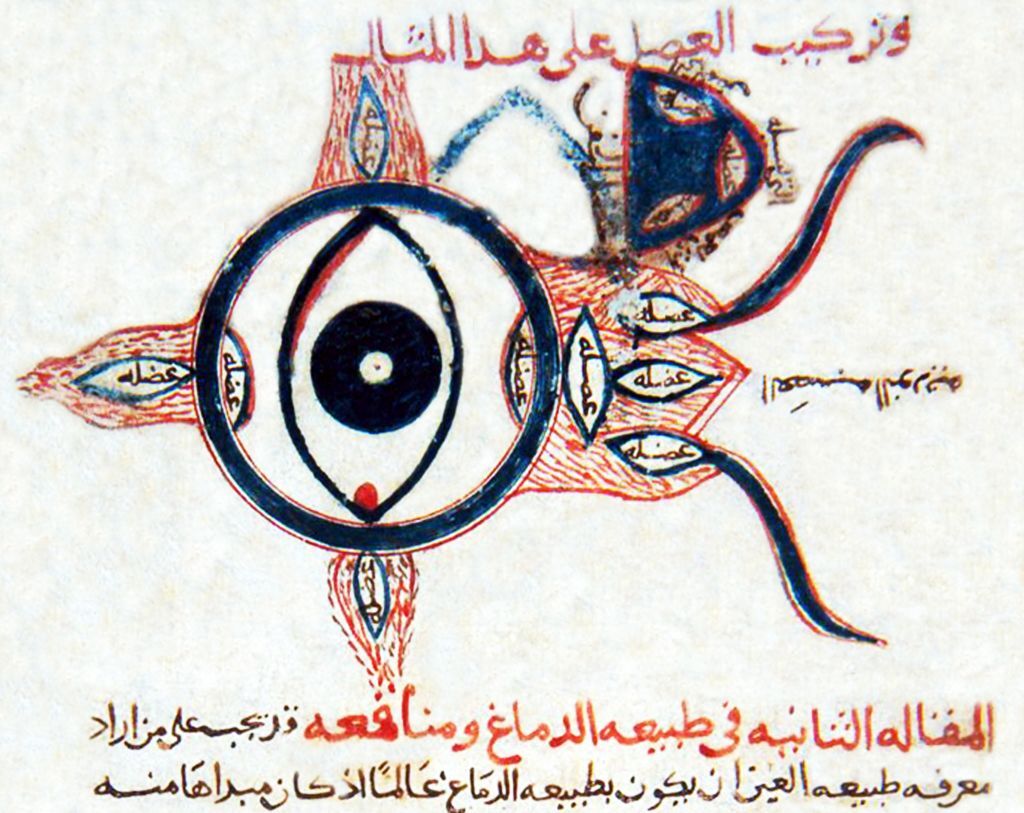 وتركيب العضل على هدا المثال
عضله
عضله
عضله
عضله
عضله
عضله
عضله
عضله
المقاله الثانيه فى طبيعه الدماغ ومنافعه قد يجب على من اراد
معرفه طبيعه العين ان يكون بطبيعه الدماغ عَالمًا اذ كان مبداهَا منه